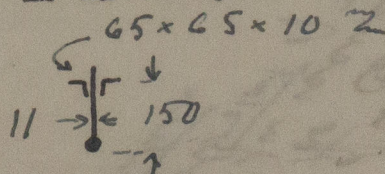 65 × 65 × 10
11 150